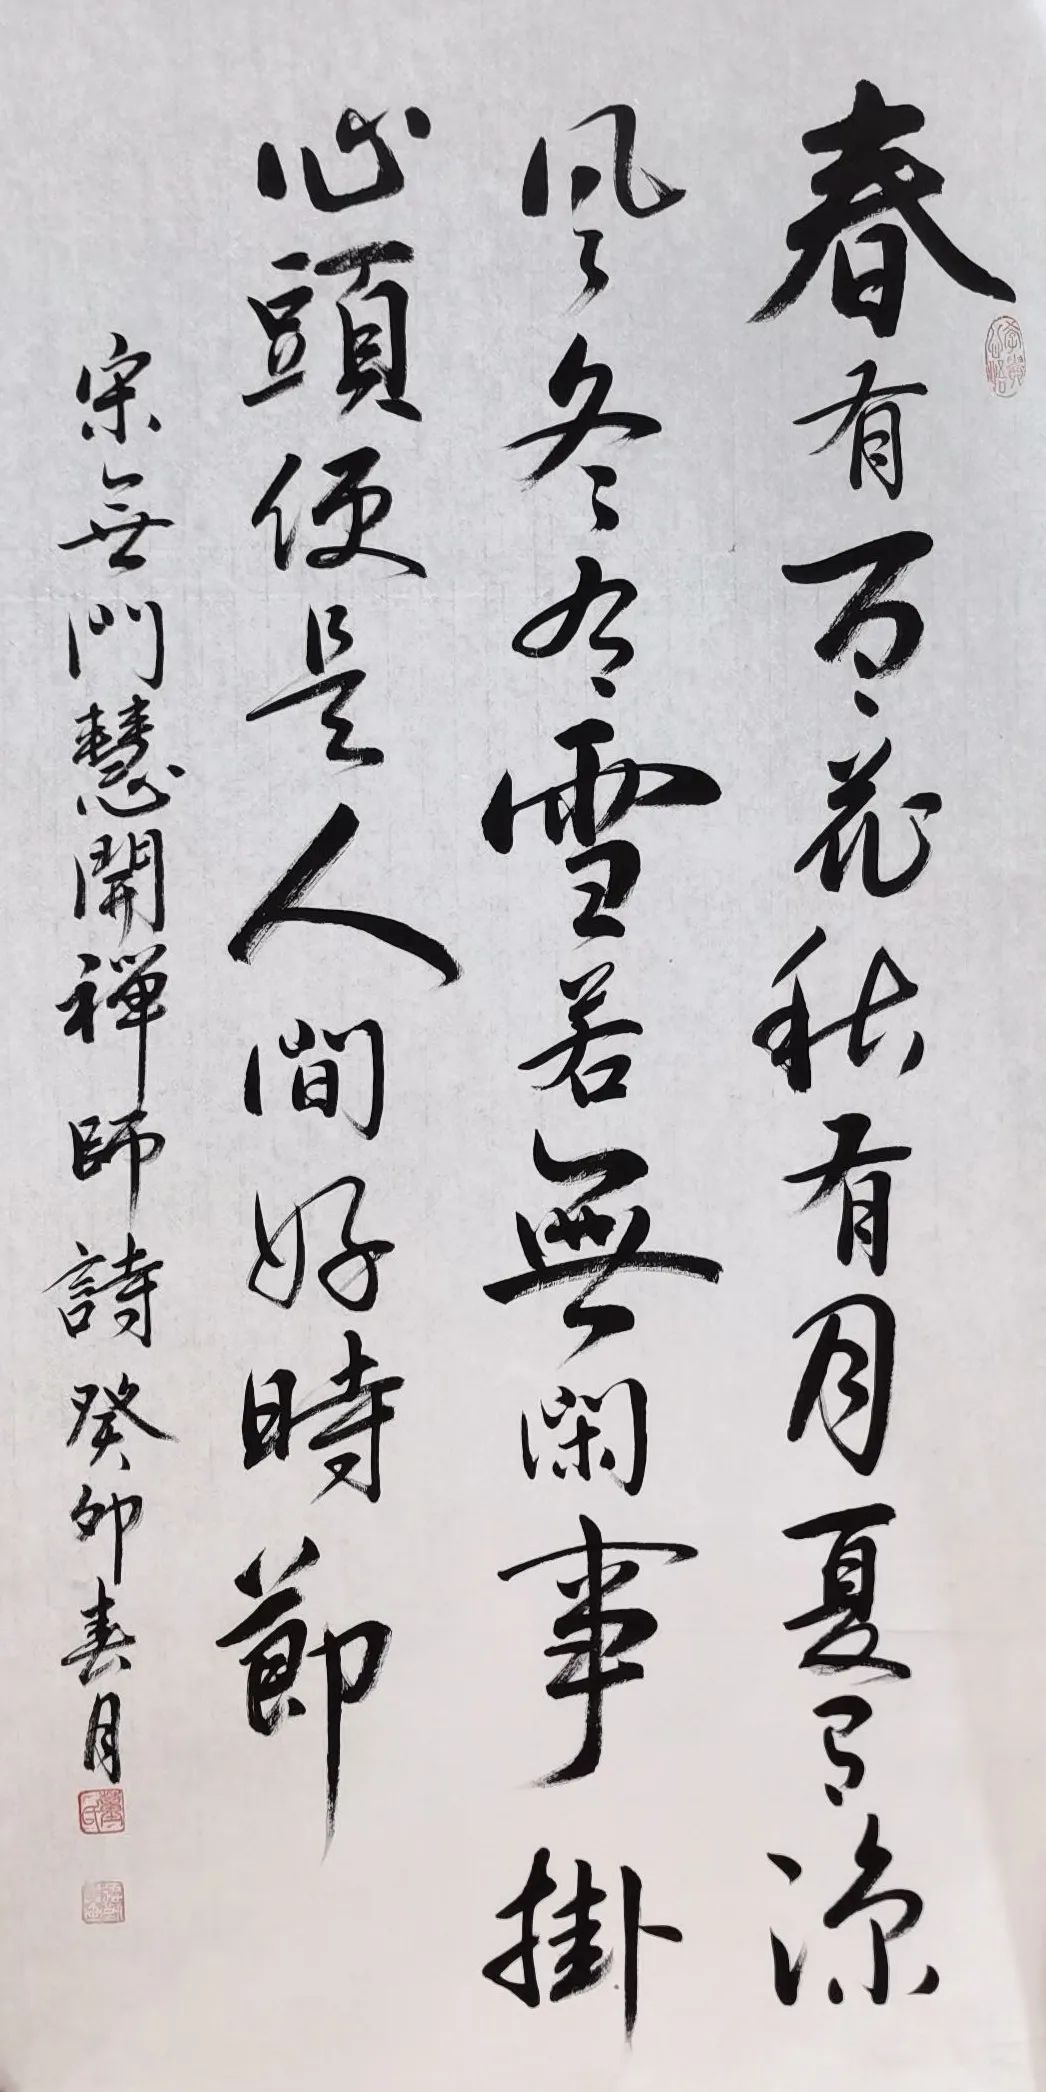 春有百花秋有月夏有涼
風冬有雪若無閑事掛
心頭便是人間好時節
宋無門慧開禪師詩癸卯春月